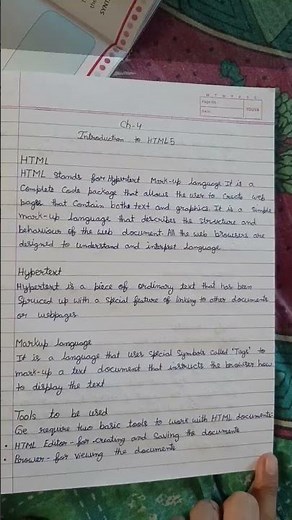 Ch-4
Introduction to HTML5
HTML
HTML stands for Hypertext Mark-up language. It is a
Complete Code package that allows the user to Create web
pages that Contain both text and graphics. It is a Simple
mark-up language that describes the structure and
behaviour of the web document. All the web browsers are
designed to understand and interpret language
Hypertext
Hypertext is a piece of ordinary text that has been
Spruced up with a Special feature of linking to other documents
or webpages.
Markup language
It is a language that uses Special Symbols called 'Tags' to
mark-up a text document that instructs the browser how
to display the text
Tools to be used
We require two basic tools to work with HTML documents-
• HTML Editor - for creating and Saving the documents
• Browser - for viewing the documents